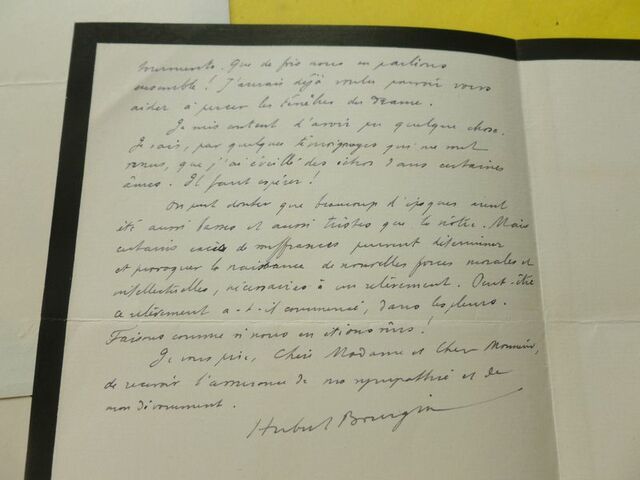 . Que de fois nous en parlions
ensemble ! J'aurais déjà voulu pouvoir vous
aider à percer les ténèbres du drame.
Je suis content d'avoir pu quelque chose.
Je sais, par quelques témoignages qui me sont
venus, que j'ai éveillé des échos dans certaines
âmes. Il faut espérer !
On peut douter que beaucoup d'époques aient
été aussi basses et aussi tristes que la nôtre. Mais
certains excès de souffrances peuvent déterminer
et provoquer la naissance de nouvelles forces morales et
intellectuelles, nécessaires à un relèvement. Peut-être
ce relèvement a-t-il commencé, dans les pleurs.
Faisons comme si nous en étions sûrs !
Je vous prie, Chère Madame et Cher Monsieur,
de recevoir l'assurance de ma sympathie et de
mon dévouement.
Hubert Bourgin